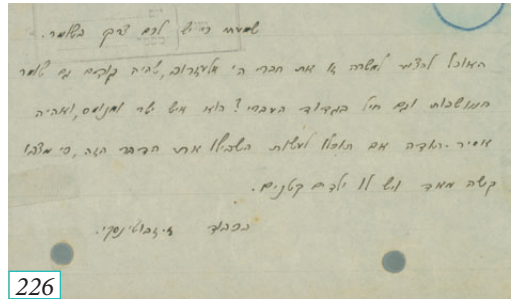 שמעתי כי יש לכם צרך בשומר.
האוכל להציע למשרה זו את חברי ה' שהיה קודם גם שומר
המושבות וגם חיל בגדוד העברי? הוא איש ישר ומנומס, ואהיה
אסיר-תודה אם תוכלו לעשות בשבילו את הדבר הזה, כי מצבו
קשה מאד ויש לו ילדים קטנים.
בכבוד ז'בוטינסקי.
226